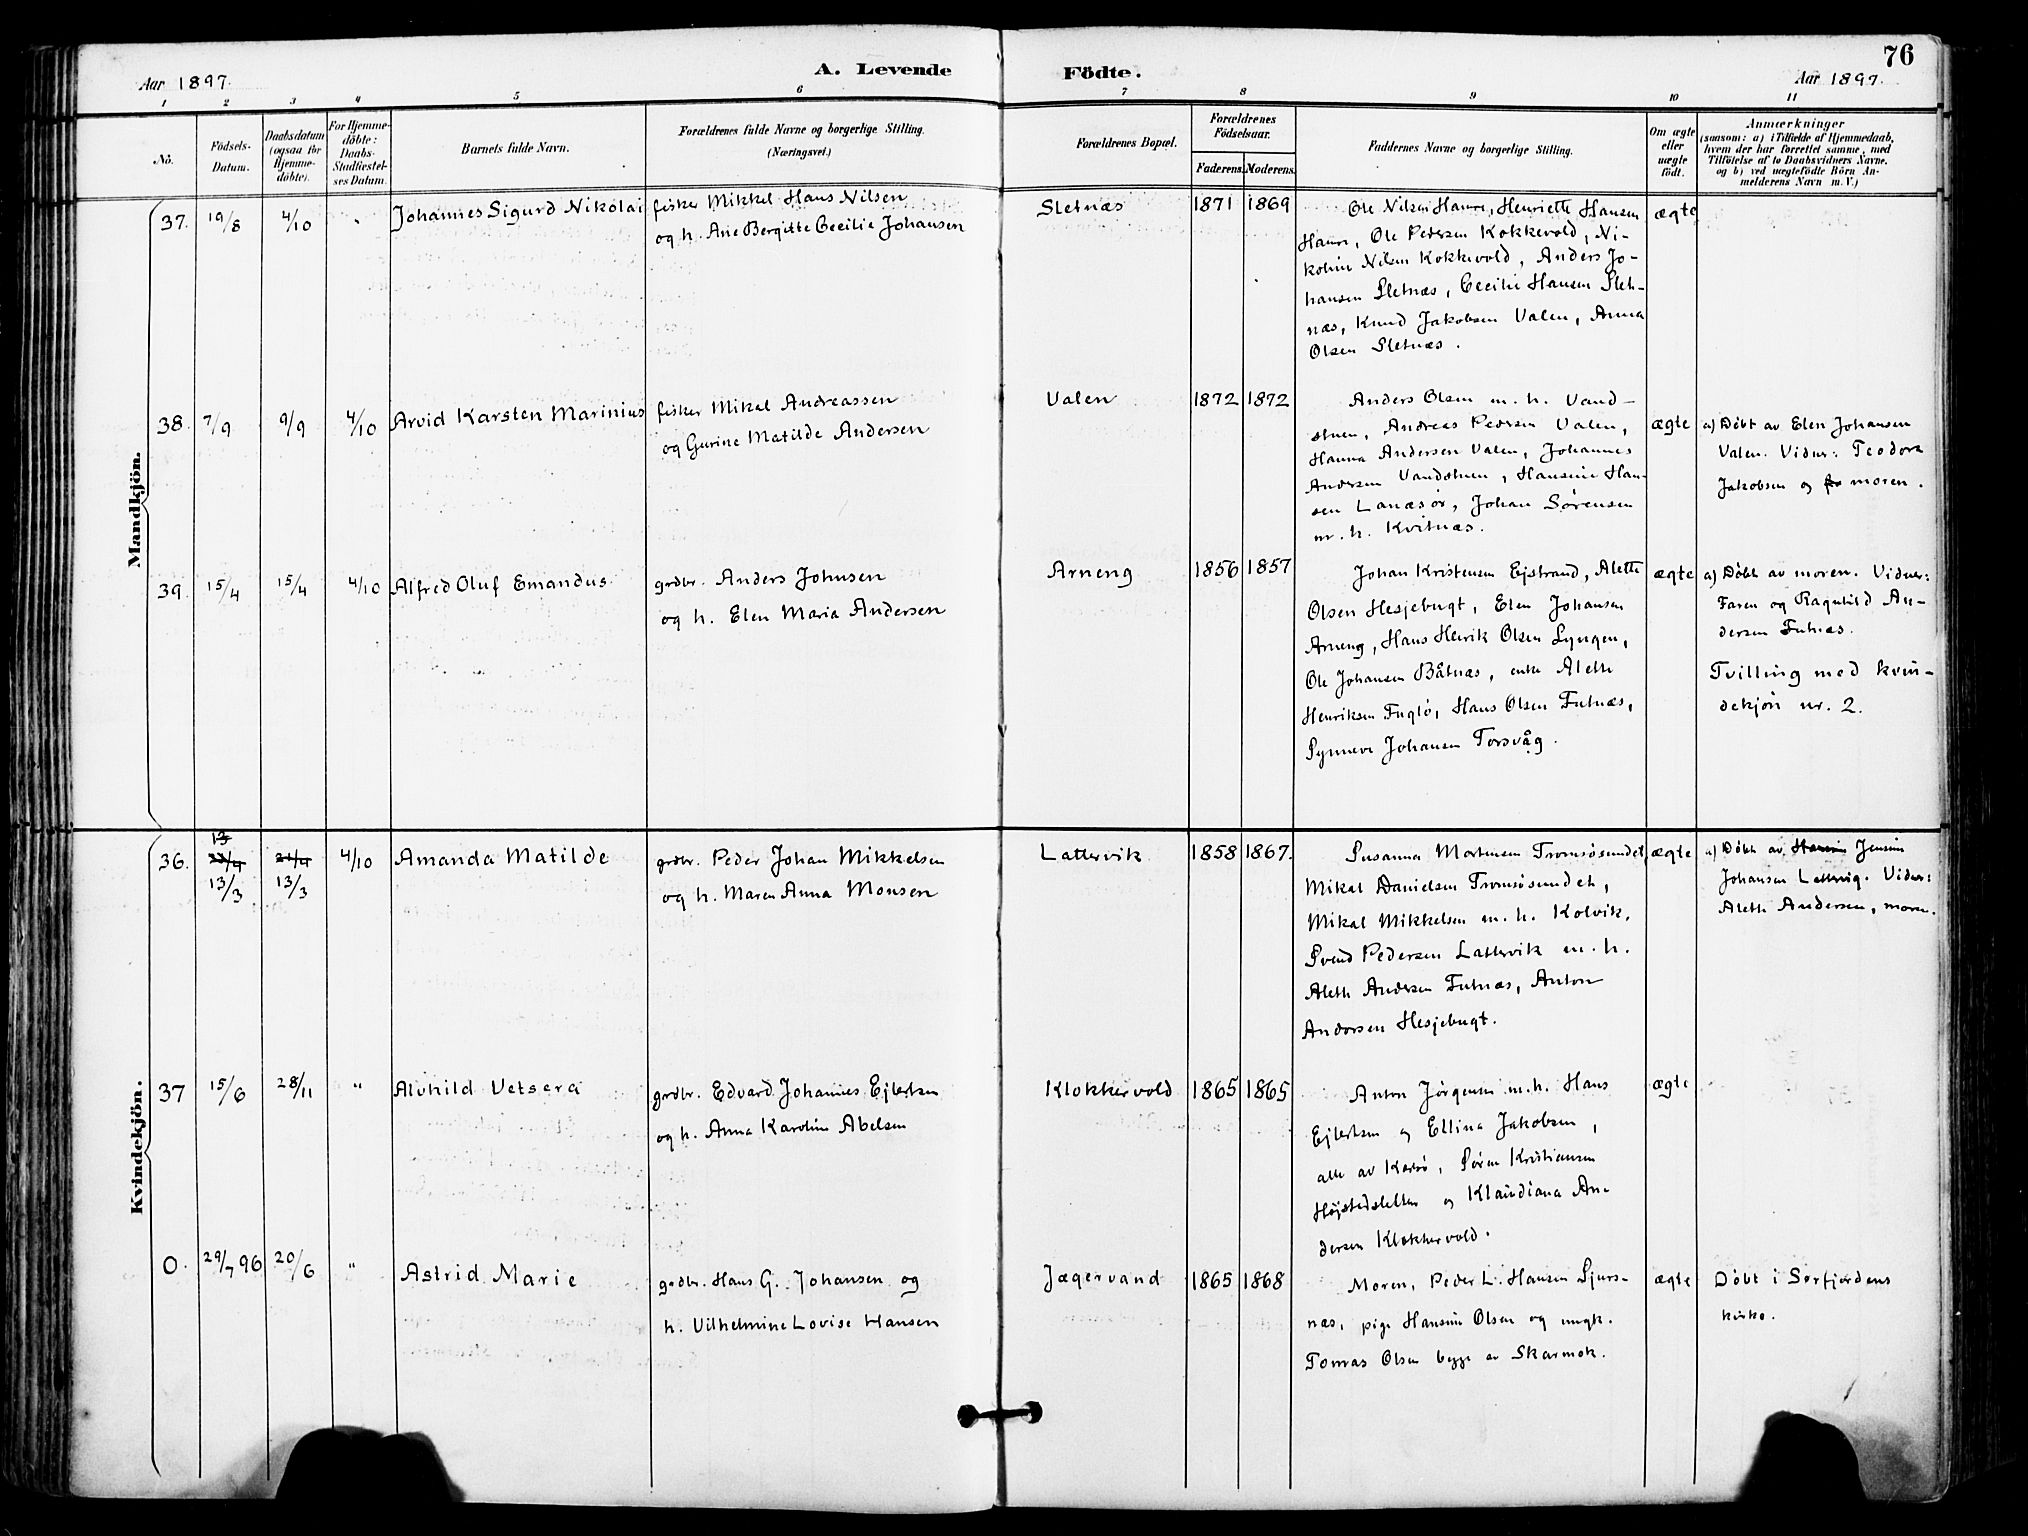 76
Aar 1897.
A. Levende
Födte.
Aar 1897.
1
2
3
4
5
6
7
8
9
10
11
No.
Födsels-
Datum.
Daabsdatum
(ogsaa for
Hjemme-
döbte).
For Hjemme-
döbte:
Daabs-
Stadfæstel-
ses Datum.
Barnets fulde Navn.
Forældrenes fulde Navne og borgerlige Stilling.
(Næringsvei.)
Forældrenes Bopæl.
Forældrenes
Födselsaar.
Faderens.
Moderens.
Faddernes Navne og borgerlige Stilling.
Om ægte
eller
uægte
födt.
Anmærkninger
(saasom: a) i Tilfælde af Hjemmedaab,
hvem der har forrettet samme, med
Tilföielse af to Daabsvidners Navne,
og b) ved uægtefödte Börn An-
melderens Navn m. V.)
Mandkjön.
37.
19/8
4/10
"
Johannes Sigurd Nikolai
fisker Mikkel Hans Nilsen
og h. Ane Bergitte Cecilie Johansen
Sletnæs
1871
1869
Ole Nilsen Hamre, Henriette Hansen
Hamre, Ole Pedersen Kokkevold, Ni-
koline Nilsen Kokkevold, Anders Jo-
hansen Sletnæs, Cecilie Hansen Slet-
næs, Knud Jakobsen Valen, Anna
Olsen Sletnæs.
ægte
38.
7/9
9/9
4/10
Arvid Karsten Marinius
fisker Mikal Andreassen
og Gurine Matilde Andersen
Valen
1872
1872
Anders Olsen m. h. Vand-
stuen, Andreas Pedersen Valen,
Hanna Andersen Valen, Johannes
Andersen Vandstuen, Hansine Han-
sen Lanæsør, Johan Sørensen
m. h. Kvitnæs.
ægte
a) Döbt av Elen Johansen
Valen. Vidner: Teodora
Jakobsen og moren.
39.
15/4
15/4
4/10
Alfred Oluf Emandus.
grdbr. Anders Johnsen
og h. Elen Maria Andersen
Arneng
1856
1857
Johan Kristensen Ejstrand, Alette
Olsen Hesjebugt, Elen Johansen
Arneng, Hans Henrik Olsen Lyngen,
Ole Johansen Båtnæs, enke Alette
Henriksen Fuglö, Hans Olsen Futnæs,
Synneve Johansen Torsvåg.
ægte
a) Döbt av moren. Vidner:
Faren og Ragnhild An-
dersen Futnæs.
Tvilling med kvin-
dekjön nr. 2.
Kvindekjön.
36.
13
21/4
13/3
21/4
13/3
4/10
Amanda Matilde
grdbr. Peder Johan Mikkelsen
og h. Maren Anna Monsen
Lattervik
1858
1867.
Susanna Mortensen Tromsösundet,
Mikal Danielsen Tromsösundet,
Mikal Mikkelsen m. h. Kolvik,
Svend Pedersen Lattervik m. h.
Aleth Andersen Futnæs, Anton
Andersen Hesjebugt.
ægte
a) Döbt av Hansine Jensine
Johansen Lattervig. Vidner:
Aleth Andersen, moren.
37
15/6
28/11
"
Alvhild Vetsera
grdbr. Edvard Johannes Ejlertsen
og h. Anna Karoline Abelsen
Klokkervold
1865
1865
Anton Jørgensen m. h. Hans
Ejlertsen og Ellina Jakobsen,
alle av Karlsö, Sören Kristiansen
Höjstedsletten og Klaudiana An-
dersen Klokkervold.
ægte
0.
29/7 96
20/6
"
Astrid Marie
grdbr. Hans G. Johansen og
h. Vilhelmine Lovise Hansen
Jægervand
1865
1868
Moren, Peder L. Hansen Sjurs-
næs, pige Hansine Olsen og ungk.
Tomas Olsen begge av Skarmok.
ægte
Döbt i Sørfjordens
kirke.